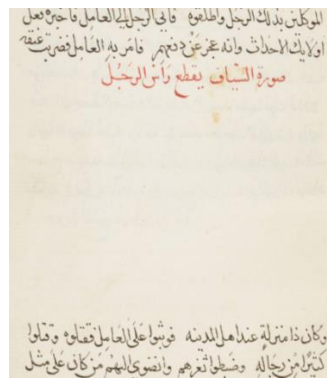 الموكلين بذلك الرجل واطلعوه فاتى الرجل الى العامل فاخبره بفعل
اولايك الاحداث وانه عجز عن دفعهم فامر به العامل فضربت عنقه
صورة السياف يقطع راس الرجل
وكان ذا منزلة عند اهل المدينه فوثبوا على العامل فقتلوه وقتلوا
كثيرا من رجاله وضبطوا ثغرهم وانضوى اليهم من كان على مثل